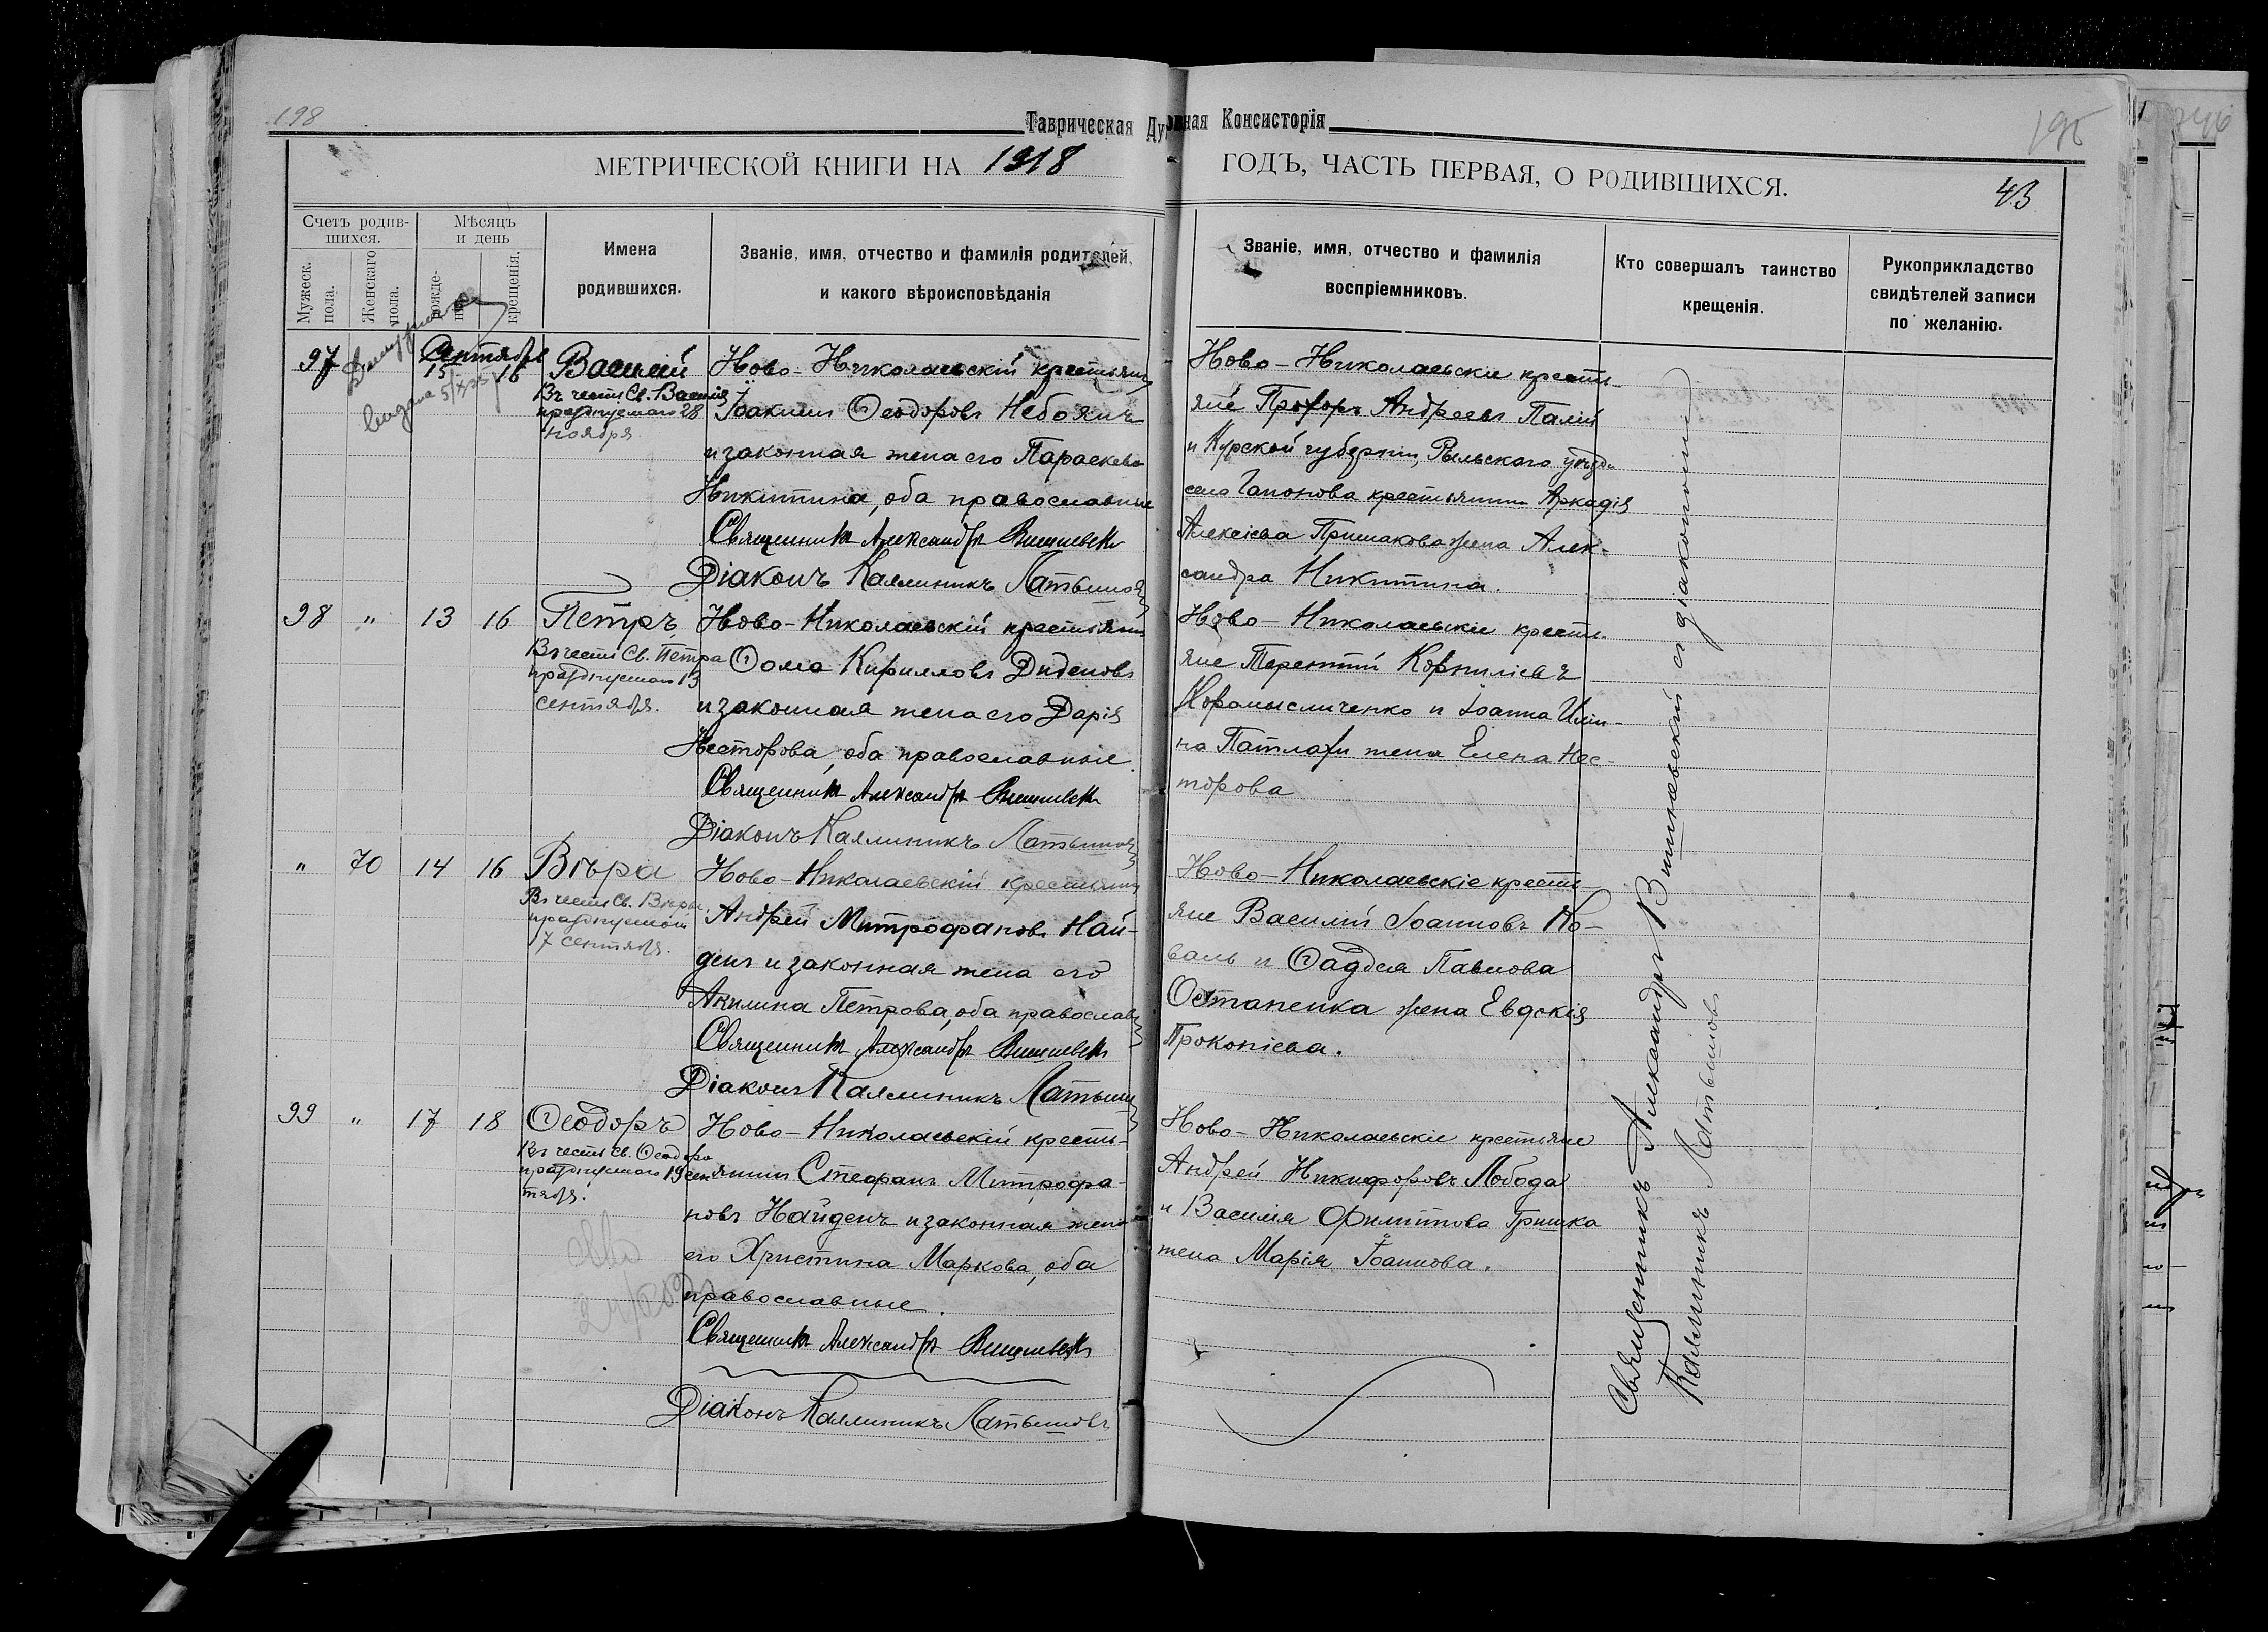 198
Таврическая Духовная Консисторія
195
МЕТРИЧЕСКОЙ КНИГИ НА 1918 ГОДЪ, ЧАСТЬ ПЕРВАЯ, О РОДИВШИХСЯ.
43
Счетъ родив-
шихся.
Мѣсяцъ
и день
Мужеск.
пола.
Женскаго
пола.
рожде-
нія.
крещенія.
Имена
родившихся.
Званіе, имя, отчество и фамилія родителей,
и какого вѣроисповѣданія
Званіе, имя, отчество и фамилія
воспріемниковъ.
Кто совершалъ таинство
крещенія.
Рукоприкладство
свидѣтелей записи
по желанію.
Сентябрь
97
выдана
15 16
Василій
Въ честь Св. Василія
празднуемаго 28
ноября.
Ново-Николаевскій крестьянин
Іоакимъ Ѳеодоровъ Небоянъ
и законная жена его Параскева
Никитина, оба православные
Священникъ Александръ Вишневск
Діаконъ Каллиникъ Латышовъ
Ново-Николаевскіе крестъ-
яне Прохоръ Андреевъ Палій
и Курской губерніи, Рыльскаго уѣзда
села Гапонова крестьянина Аркадія
Алексіева Пришакова жена Алек-
сандра Никитина.
98 " 13 16
Петръ
Въ честь Св. Петра
празднуемаго 13
сентября.
Ново-Николаевскій крестьянин
Ѳома Кирилловъ Диденовъ
и законная жена его Дарія
Несторова, оба православные.
Священникъ Александръ Вишневск
Діаконъ Каллиникъ Латышовъ
Ново-Николаевскіе кресть-
яне Терентій Корниліевъ
Коромысличенко и Іоанна Или-
на Патлахи жена Елена Нес-
торова
" 70 14 16
Вѣра
Въ честь Св. Вѣры,
празднуемой
17 сентября.
Ново-Николаевскій крестьянин
Андрей Митрофановъ Най-
денъ и законная жена его
Акилина Петрова, оба православн
Священникъ Александръ Вишневск
Діаконъ Каллиникъ Латышов
Ново-Николаевскіе кресть-
яне Василій Іоанновъ Ко-
валь и Ѳаддея Павлова
Остапенка жена Евдокія
Прокопіева.
99 " 17 18
Ѳеодоръ
Въ честь Св. Ѳеодора
празднуемаго 19 сен
тября.
Ново-Николаевскій кресть-
янинъ Стефанъ Митрофа-
новъ Найденъ и законная жена
его Христина Маркова, оба
православные.
Священникъ Александръ Вишневск
Діаконъ Каллиникъ Латышовъ
Ново-Николаевскіе крестьяне
Андрей Никифоровъ Лобода
и Василія Филиппова Гришка
жена Марія Іоаннова.
Священникъ Александръ Вишневскій съ діакономъ
Каллиникъ Латышовъ